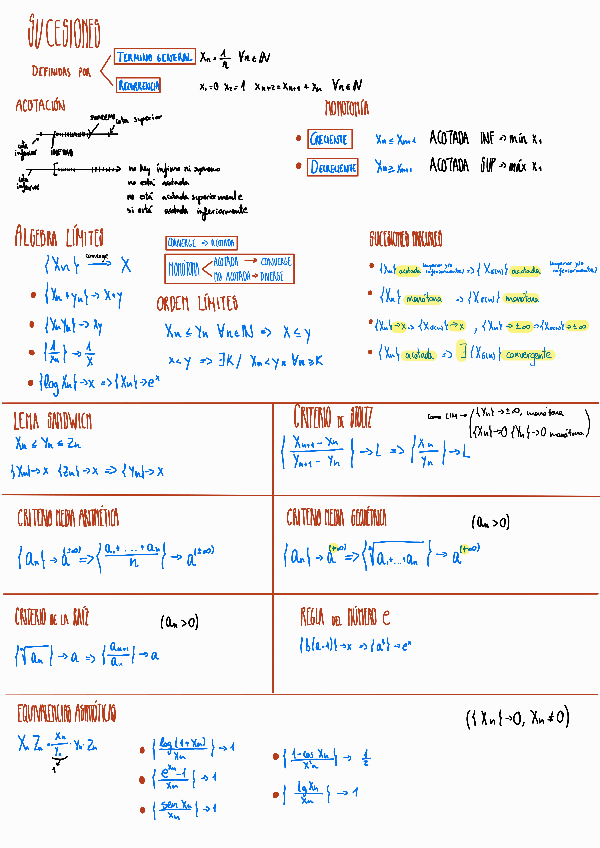 SUCESIONES
DEFINIDAS POR
TERMINO GENERAL Xn = 1/n ∀n∈ℕ
RECURRENCIA x₁=0 x₂=1 xn+2=xn+1+xn ∀n∈ℕ
ACOTACIÓN
SUPREMO cota superior
cota inferior ÍNFIMO
cota inferior
no hay ínfimo ni supremo
no está acotada
no está acotada superiormente
si está acotada inferiormente
MONOTONÍA
• CRECIENTE Xn ≤ Xn+1 ACOTADA INF → mín x₁
• DECRECIENTE Xn ≥ Xn+1 ACOTADA SUP → máx x₁
ÁLGEBRA LÍMITES
{Xn} converge → X
• {Xn + yn} → X+y
• {XnYn} → xy
• {1/Xn} → 1/X
• {log Xn} → x => {Xn} → eˣ
CONVERGE → ACOTADA
MONÓTONA
ACOTADA → CONVERGE
NO ACOTADA → DIVERGE
ORDEN LÍMITES
Xn ≤ Yn ∀n∈ℕ => X ≤ y
x < y => ∃K / Xn < Yn ∀n ≥ K
SUCESIONES PARCIALES
• {Xn} acotada (superior y/o inferiormente) => {Xσ(n)} acotada (superior y/o inferiormente)
• {Xn} monótona => {Xσ(n)} monótona
• {Xn} → x => {Xσ(n)} → x , {Xn} → ±∞ => {Xσ(n)} → ±∞
• {Xn} acotada => ∃ {Xσ(n)} convergente
LEMA SANDWICH
Xn ≤ Yn ≤ Zn
{Xn} → x {Zn} → x => {Yn} → x
CRITERIO DE STOLZ
{Yn} → ±∞, monótona
{Xn} → 0 {Yn} → 0 monótona
{Xn+1 - Xn / Yn+1 - Yn} → L => {Xn / Yn} → L
CRITERIO MEDIA ARITMÉTICA
{an} → a (±∞) => {a₁+...+an / n} → a (±∞)
CRITERIO MEDIA GEOMÉTRICA (an>0)
{an} → a (+∞) => {ⁿ√a₁·...·an} → a (+∞)
CRITERIO DE LA RAÍZ (an>0)
{ⁿ√an} → a => {an+1 / an} → a
REGLA DEL NÚMERO e
{b(a-1)} → x => {aᵇ} → eˣ
EQUIVALENCIAS ASINTÓTICAS ({Xn} → 0, Xn ≠ 0)
Xn Zn = Xn/Yn · Yn · Zn
1
• {log(1+Xn) / Xn} → 1
• {eˣⁿ-1 / Xn} → 1
• {sen Xn / Xn} → 1
• {1-cos Xn / X²n} → 1/2
• {tg Xn / Xn} → 1